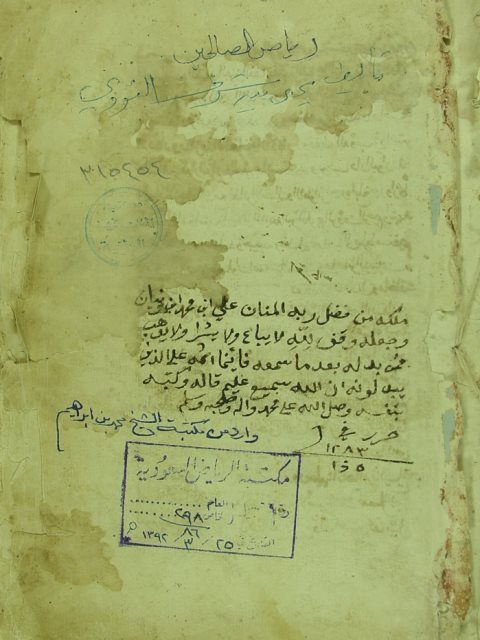 رياض الصالحين
تأليف يحيى بن شرف النووي
٣١٥٤٥٤
ملكه من فضل ربه المنان علي ابن محمد ابن
وجعله وقف لله لا يباع ولا يشرا ولا يوهب
فمن بدله بعد ما سمعه فانما اثمه على الذين
يبدلونه ان الله سميع عليم قاله وكتبه
بنفسه وصل الله على محمد واله وصحبه وسلم
حرر في
١٢٨٣
٥ ذا
وارد من مكتبة الشيخ محمد بن ابراهيم
مكتبة الرياض السعودية
رقم
العام
الخاص ٢٩٨ / ٨٦
التاريخ في ٢٥ / ٣ / ١٣٩٢ ه